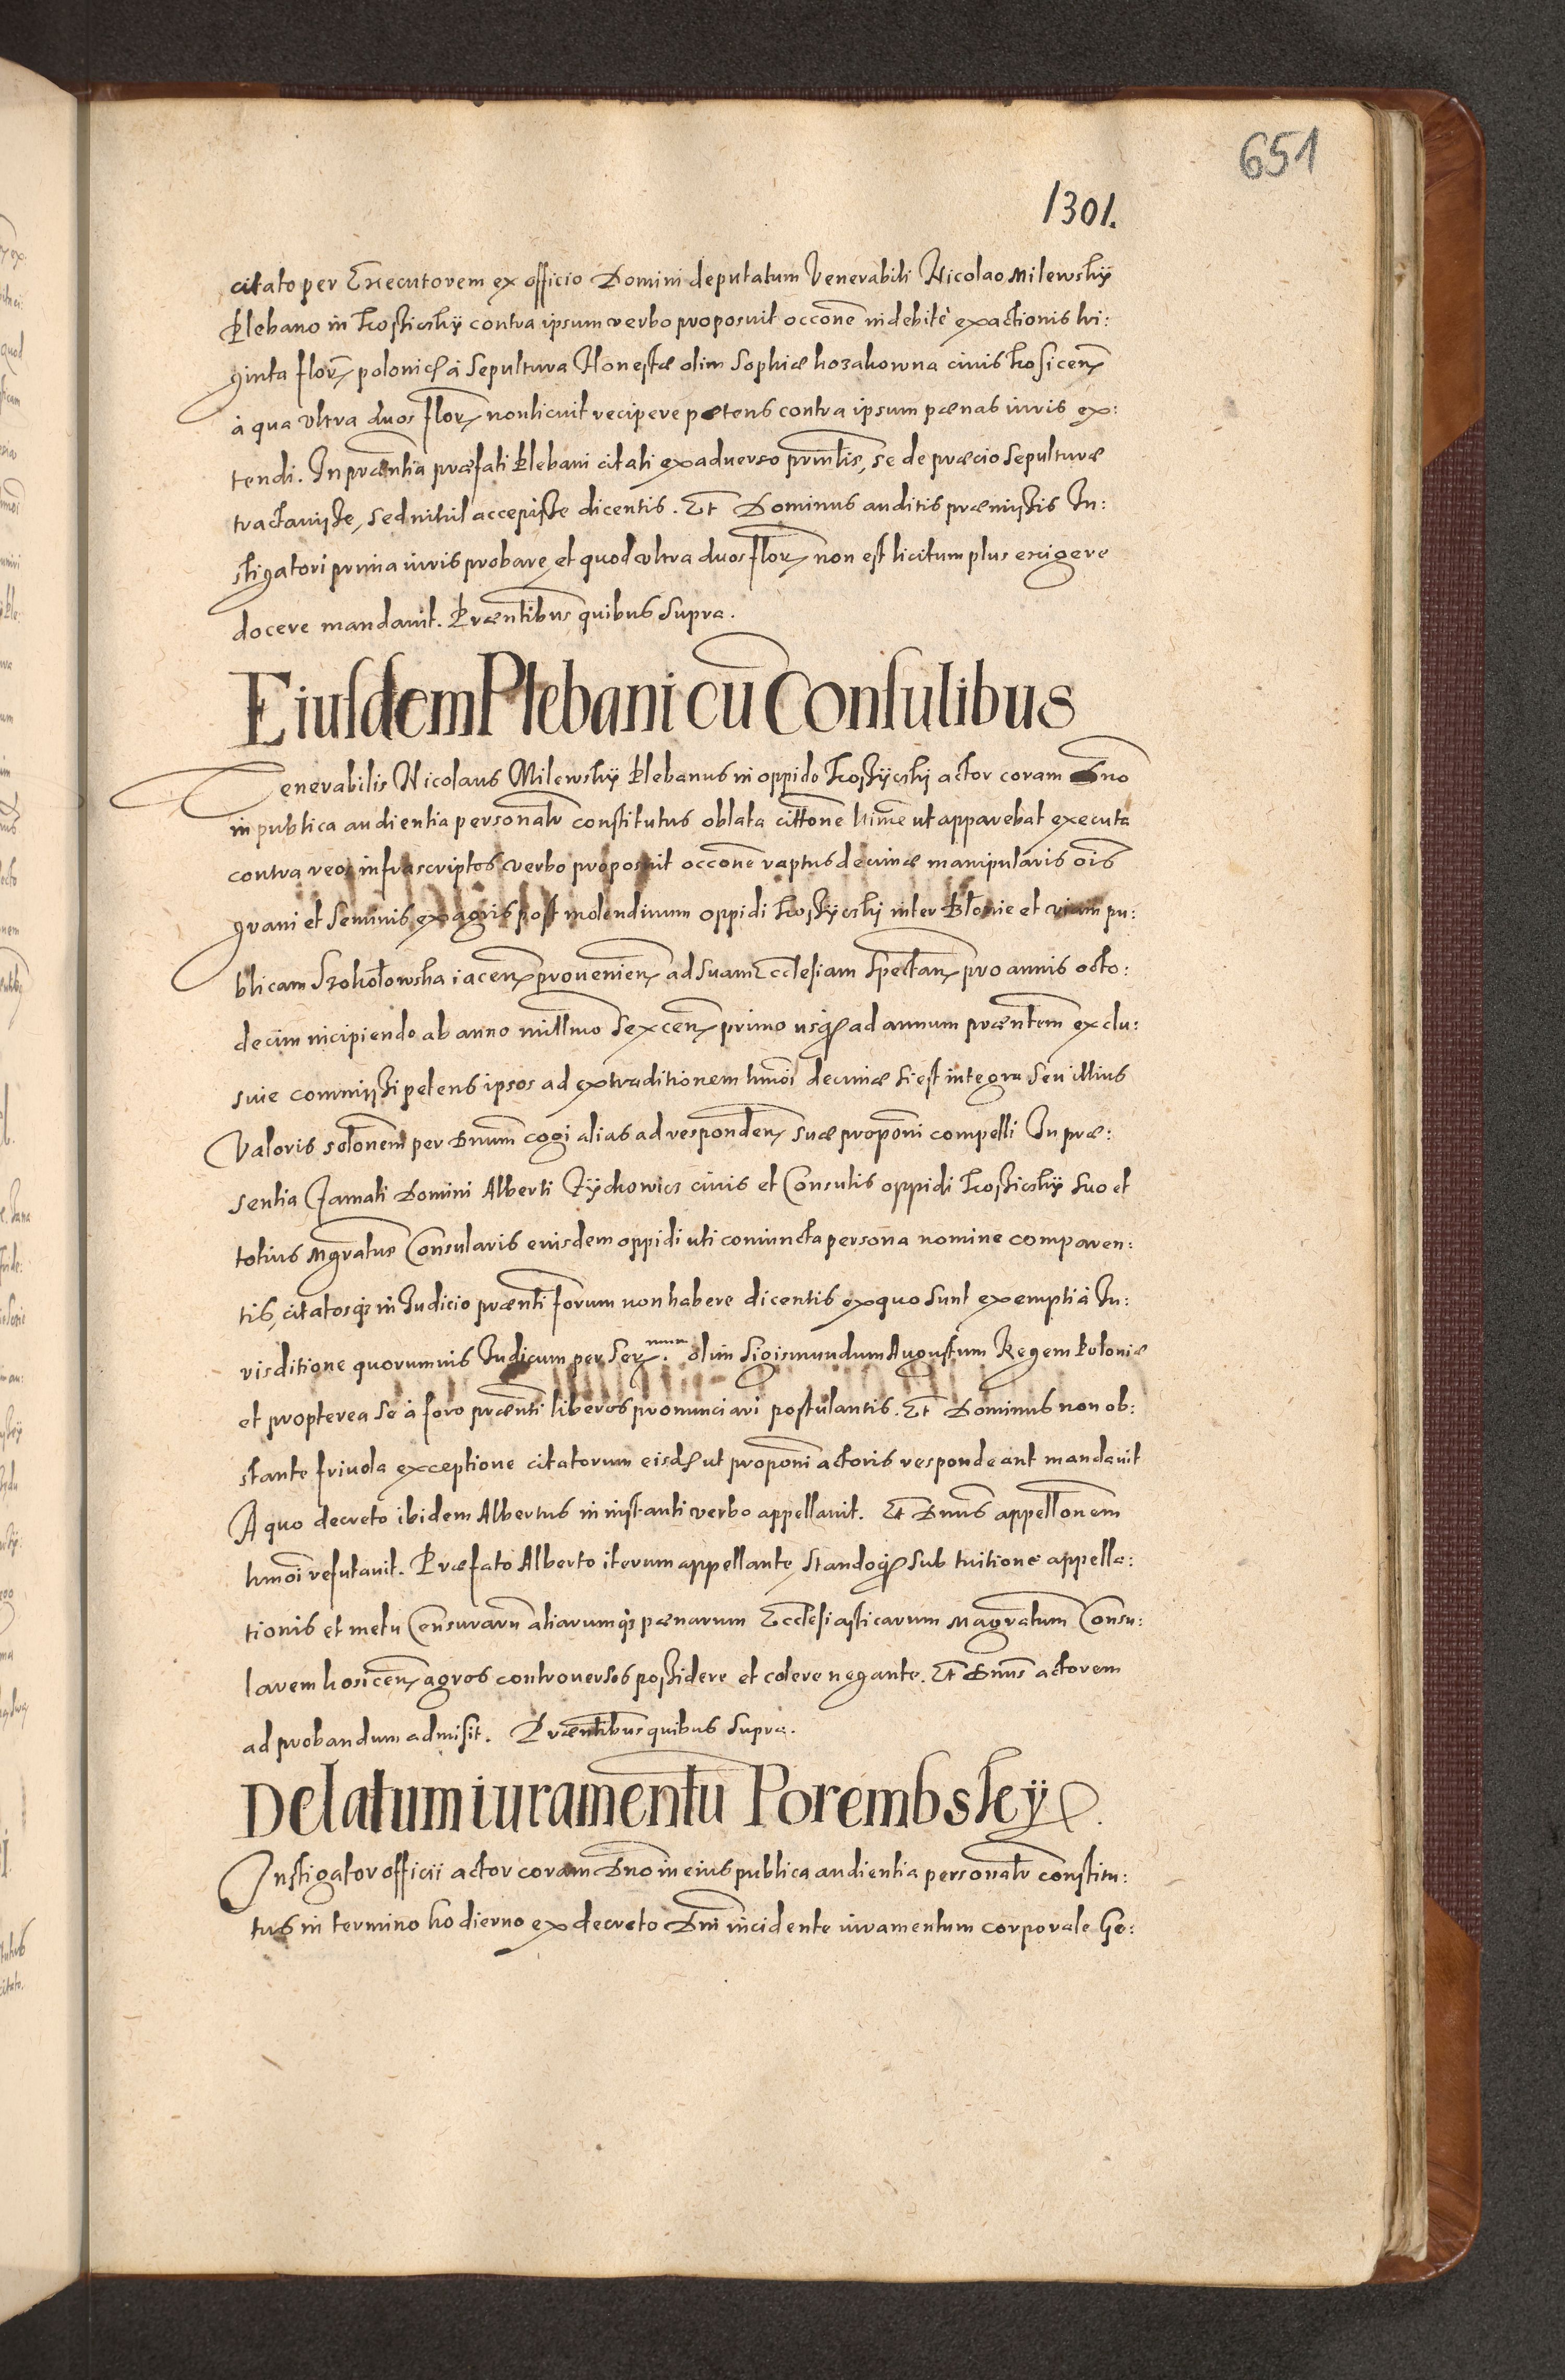 651
1301.
citato per Executorem ex officio Domini deputatum Venerabili Nicolao Milewskÿ
Plebano in Kossiczkÿ contra ipsum verbo proposuit occōne indebitè exactionis tri:
ginta flor̄ polonic̄ à Sepultura Honestæ olim Sophiæ Kozakowna civis Kosicen̄
à qua vltra duos flor̄ non licuit recipere petens contra ipsum pænas iuris ex:
tendi. In præntia præfati Plebani citati ex aduerso prīntis, se de præcio sepulturæ
tractauisse, sed nihil accepisse dicentis. Et Dominus auditis præmissis In:
stigatori prima iuris probare, et quod vltra duos flor̄ non est licitum plus exigere
docere mandauit. Præntibus quibus supra.
Eiusdem Plebani cū Consulibus
Venerabilis Nicolaus Milewskÿ Plebanus in oppido Kossÿczkj actor coram Dno
in publica audientia personalr constitutus oblata cittōne ut apparebat executa
contra reos infrascriptos verbo proposuit occōne raptus decimæ manipularis ōis
grani et seminis ex agris post molendinum oppidi Kossÿczkj inter Błonie et viam pu:
blicam Szokołowska iacen̄ prouenien̄ ad suam Ecclesiam spectan̄ pro annis octo:
decim incipiendo ab anno millmo Sexcen̄ primo usq̨ ad annum præntem exclu:
siue commissi petens ipsos ad extraditionem hmōi decimæ si est integra seu illius
Valoris solōnem per Dnum cogi alias ad responden̄ suæ propōni compelli In præ:
sentia Famati Domini Alberti Zÿchowicz ciuis et Consulis oppidi Kossiczkÿ suo et
totius Mgratus Consularis eiusdem oppidi uti coniuncta persona nomine comparen:
tis, citatosq̨ in Iudicio prænti forum non habere dicentis ex quo sunt exempti à Iu:
risditione quorumuis Iudicum per Ser.mum olim Sigismundum Augustum Regem Poloniæ
et propterea se à foro prænti liberos pronunciari postulantis. Et Dominus non ob:
stante friuola exceptione citatorum eisd̄ ut propōni actoris respondeant mandauit
A quo decreto ibidem Albertus in instanti verbo appellauit. Et Dnus appellōnem
hmōi refutauit. Præfato Alberto iterum appellante, standoq̨ sub tuitione appella:
tionis et metu Censurarū aliarumq̨ pænarum Ecclesiasticarum Magratum Consu:
larem Kosicen̄ agros controuersos possidere et colere negante. Et Dnus actorem
ad probandum admisit. Præntibus quibus supra.
Delatum iuramentū Porembskÿ.
Instigator officii actor coram Dno in eius publica audientia personalr constitu:
tus in termino hodierno ex decreto Dni incidente iuramentum corporale Ge: